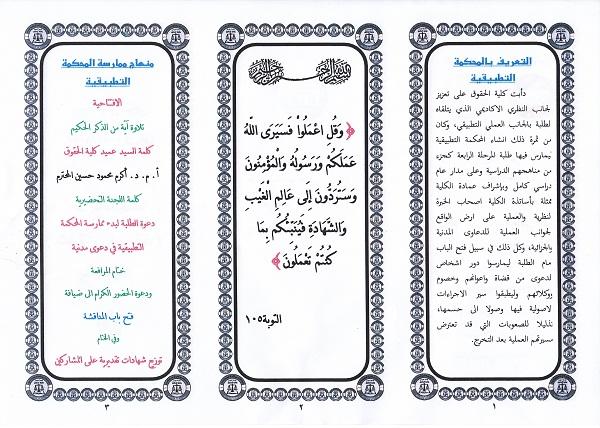 التعريف بالمحكمة
التطبيقية
دأبت كلية الحقوق على تعزيز
لجانب النظري الاكاديمي الذي يتلقاه
لطلبة بالجانب العملي التطبيقي، وكان
من ثمرة ذلك انشاء المحكمة التطبيقية
ليمارس فيها طلبة المرحلة الرابعة كجزء
من مناهجهم الدراسية وعلى مدار عام
دراسي كامل وبإشراف عمادة الكلية
ممثلة بأساتذة الكلية اصحاب الخبرة
لنظرية والعملية على ارض الواقع
لجوانب العملية للدعاوى المدنية
والجزائية، وكل ذلك في سبيل فتح الباب
امام الطلبة ليمارسوا دور اشخاص
لدعوى من قضاة واعوانهم وخصوم
ووكلائهم وليطبقوا سير الاجراءات
لاصولية فيها وصولا الى حسمها،
تذليلا للصعوبات التي قد تعترض
مسيرتهم العملية بعد التخرج.
١
بسم الله الرحمن الرحيم
﴿ وَقُلِ اعْمَلُوا فَسَيَرَى اللَّهُ
عَمَلَكُمْ وَرَسُولُهُ وَالْمُؤْمِنُونَ
وَسَتُرَدُّونَ إِلَى عَالِمِ الْغَيْبِ
وَالشَّهَادَةِ فَيُنَبِّئُكُم بِمَا
كُنتُمْ تَعْمَلُونَ ﴾
التوبة ١٠٥
٢
منهاج ممارسة المحكمة
التطبيقية
الافتتاحية
تلاوة آية من الذكر الحكيم
كلمة السيد عميد كلية الحقوق
أ . م . د . أكرم محمود حسين المحترم
كلمة اللجنة التحضيرية
دعوة الطلبة لبدء ممارسة المحكمة
التطبيقية في دعوى مدنية
ختام المرافعة
ودعوة الحضور الكرام الى ضيافة
فتح باب المناقشة
وفي الختام
توزيع شهادات تقديرية على المشاركين
٣